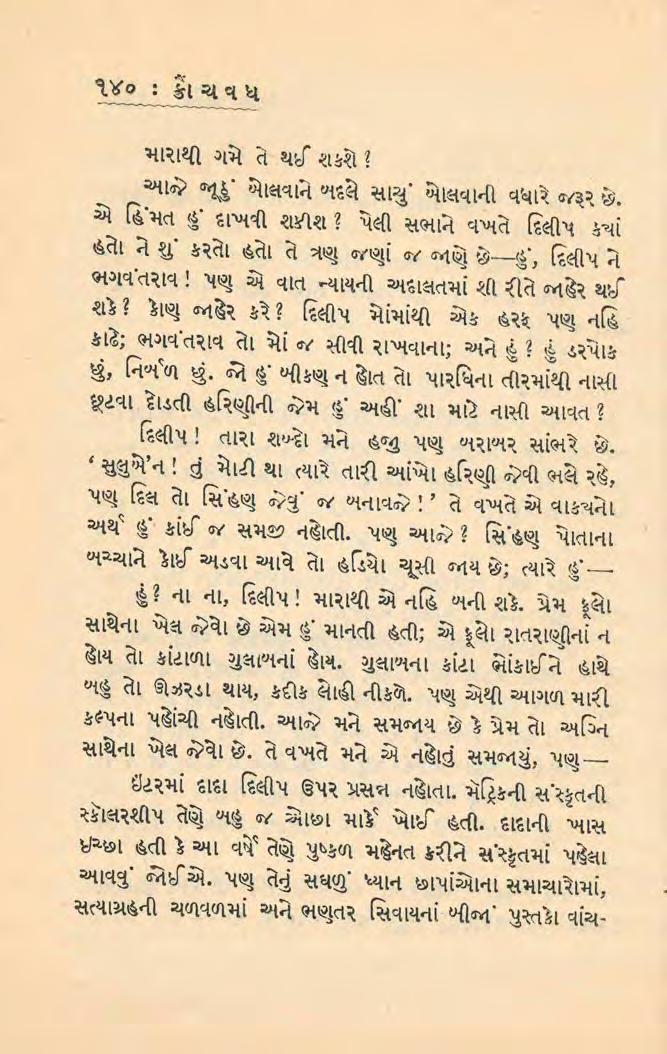 ૧૪૦ : ક્રૌંચવધ
મારાથી ગમે તે થઈ શકશે ?
આજે જૂઠું બોલવાને બદલે સાચું બોલવાની વધારે જરૂર છે.
એ હિંમત હું દાખવી શકીશ ? પેલી સભાને વખતે દિલીપ કયાં
હતો ને શું કરતો હતો તે ત્રણ જણાં જ જાણે છે—હું, દિલીપ ને
ભગવંતરાવ ! પણ એ વાત ન્યાયની અદાલતમાં શી રીતે જાહેર થઈ
શકે ? કોણ જાહેર કરે ? દિલીપ મોંમાંથી એક હરફ પણ નહિ
કાઢે; ભગવંતરાવ તો મોં જ સીવી રાખવાના; અને હું ? હું ડરપોક
છું, નિર્બળ છું. જો હું બીકણ ન હોત તો પારધિના તીરમાંથી નાસી
છૂટવા દોડતી હરિણીની જેમ હું અહીં શા માટે નાસી આવત ?
દિલીપ ! તારા શબ્દો મને હજુ પણ બરાબર સાંભરે છે.
‘ સુલુબે’ન ! તું મોટી થા ત્યારે તારી આંખો હરિણી જેવી ભલે રહે,
પણ દિલ તો સિંહણ જેવું જ બનાવજે ! ’ તે વખતે એ વાકયનો
અર્થ હું કાંઈ જ સમજી નહોતી. પણ આજે ? સિંહણ પોતાના
બચ્ચાને કોઈ અડવા આવે તો હડિયો ચૂસી જાય છે; ત્યારે હું—
હું ? ના ના, દિલીપ ! મારાથી એ નહિ બની શકે. પ્રેમ ફૂલો
સાથેના ખેલ જેવો છે એમ હું માનતી હતી; એ ફૂલો રાતરાણીનાં ન
હોય તો કાંટાળા ગુલાબનાં હોય. ગુલાબના કાંટા ભોંકાઈને હાથે
બહુ તો ઊઝરડા થાય, કદીક લોહી નીકળે. પણ એથી આગળ મારી
કલ્પના પહોંચી નહોતી. આજે મને સમજાય છે કે પ્રેમ તો અગ્નિ
સાથેના ખેલ જેવો છે. તે વખતે મને એ નહોતું સમજાયું, પણ—
ઇંટરમાં દાદા દિલીપ ઉપર પ્રસન્ન નહોતા. મૅટ્રિકની સંસ્કૃતની
સ્કૉલરશીપ તેણે બહુ જ ઓછા માર્કે ખોઈ હતી. દાદાની ખાસ
ઇચ્છા હતી કે આ વર્ષે તેણે પુષ્કળ મહેનત કરીને સંસ્કૃતમાં પહેલા
આવવું જોઈએ. પણ તેનું સઘળું ધ્યાન છાપાંઓના સમાચારોમાં,
સત્યાગ્રહની ચળવળમાં અને ભણતર સિવાયનાં બીજાં પુસ્તકો વાંચ-